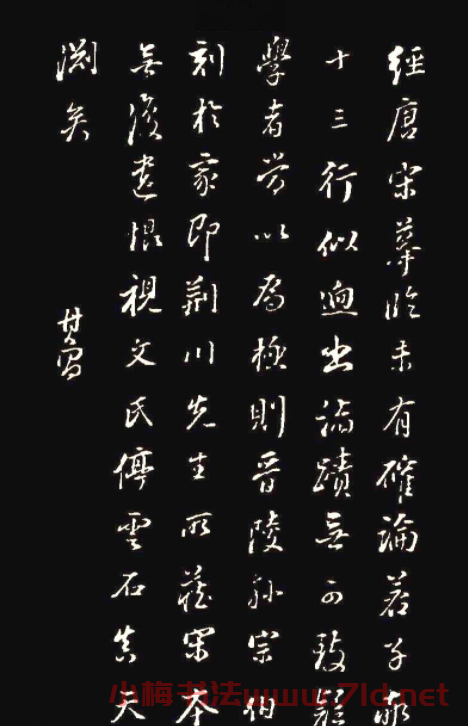 經唐宋摹臨未有確論若子敬
十三行似迥出諸蹟無可致疑
學者嘗以為極則晋陵孫宗伯
刻於家即荆川先生所藏宋本
無復遺恨視文氏停雲石真天
淵矣
其昌
小梅书法www.7ld.net